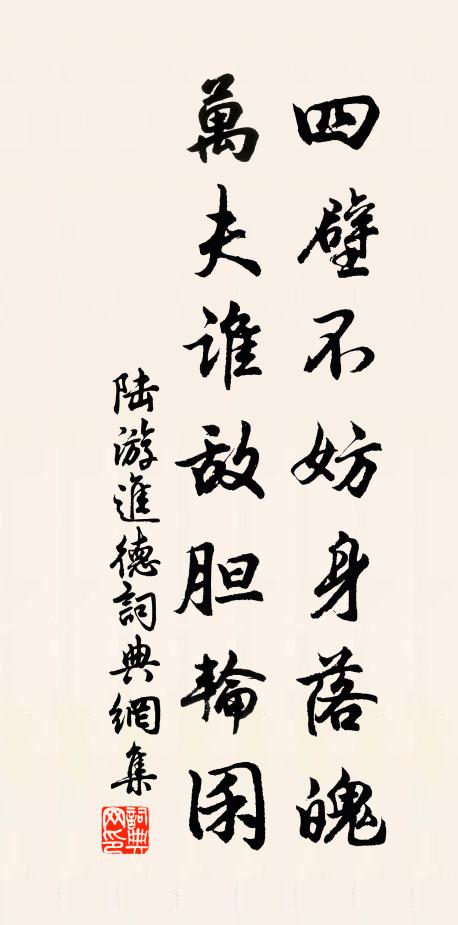 四壁不妨身落魄
萬夫誰敵胆輪囷
陆游進德詞典網集
詞典网印